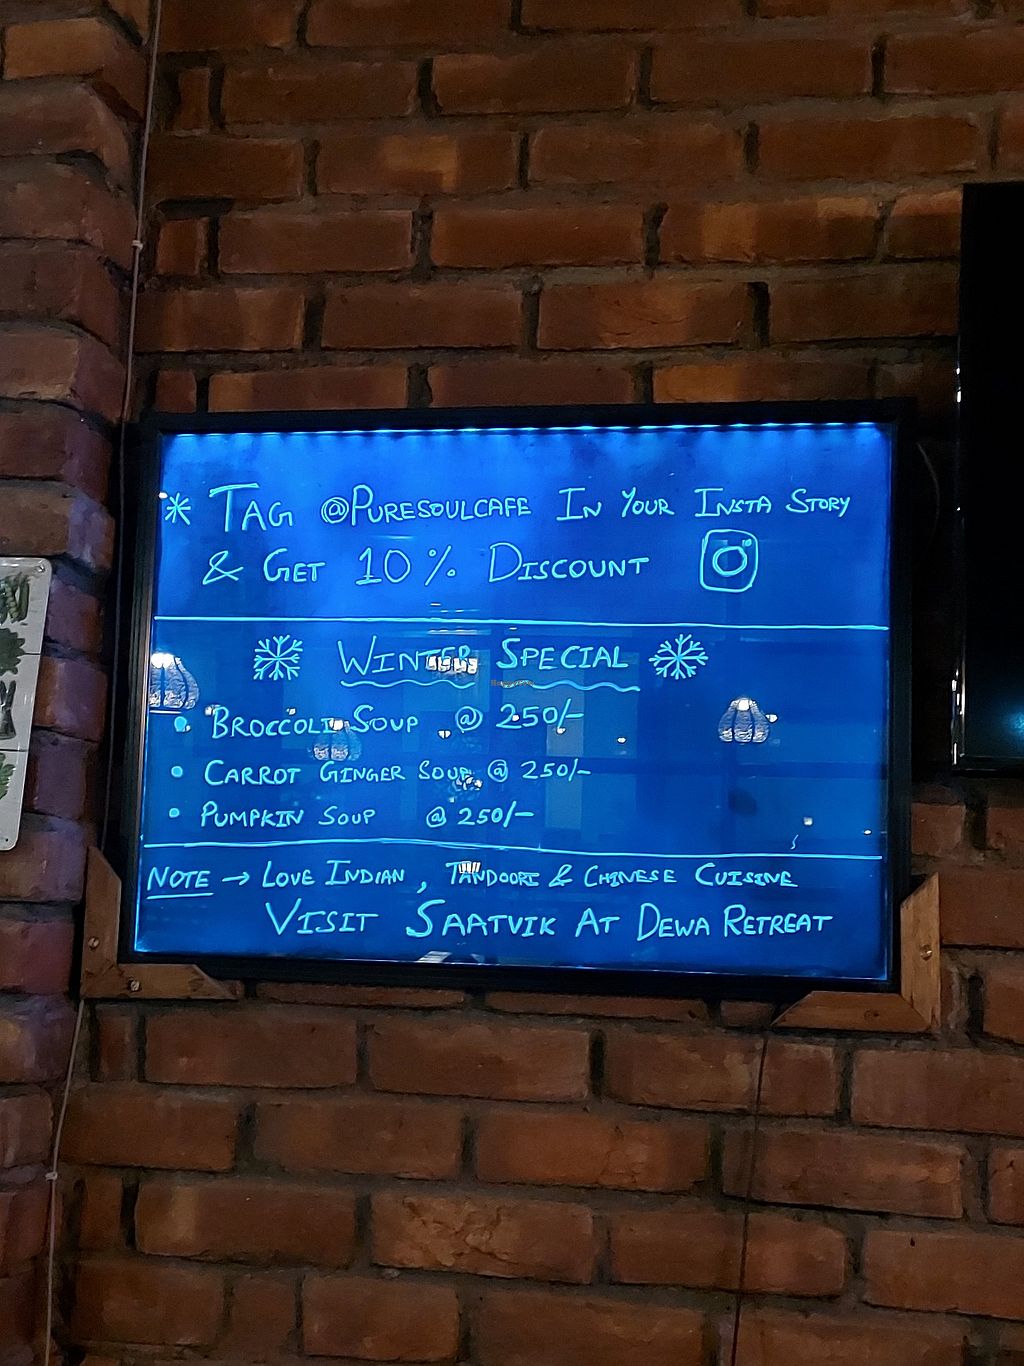 * TAG @PURESOULCAFE IN YOUR INSTA STORY
& GET 10% DISCOUNT
WINTER SPECIAL
• BROCCOLI SOUP @ 250/-
• CARROT GINGER SOUP @ 250/-
• PUMPKIN SOUP @ 250/-
NOTE → LOVE INDIAN, TANDOORI & CHINESE CUISINE
VISIT SAATVIK AT DEWA RETREAT